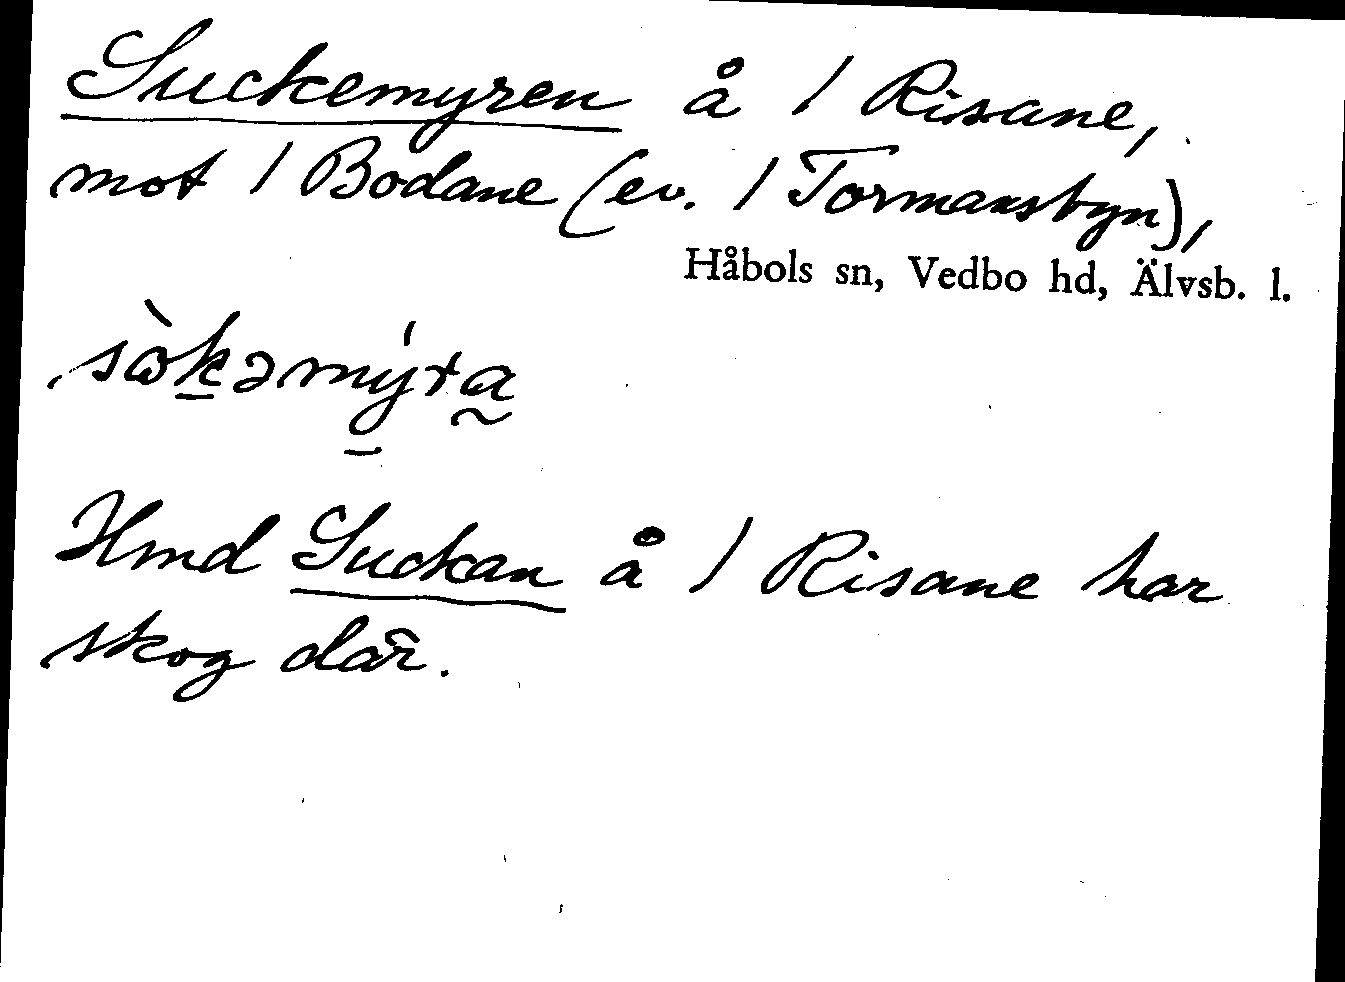 Suckemyren å / Risane,
mot / Bodane (ev. / Tormansbyn),
Håbols sn, Vedbo hd, Älvsb. l.
sòkəmýra
Hmd Suckan å / Risane har
skog där.